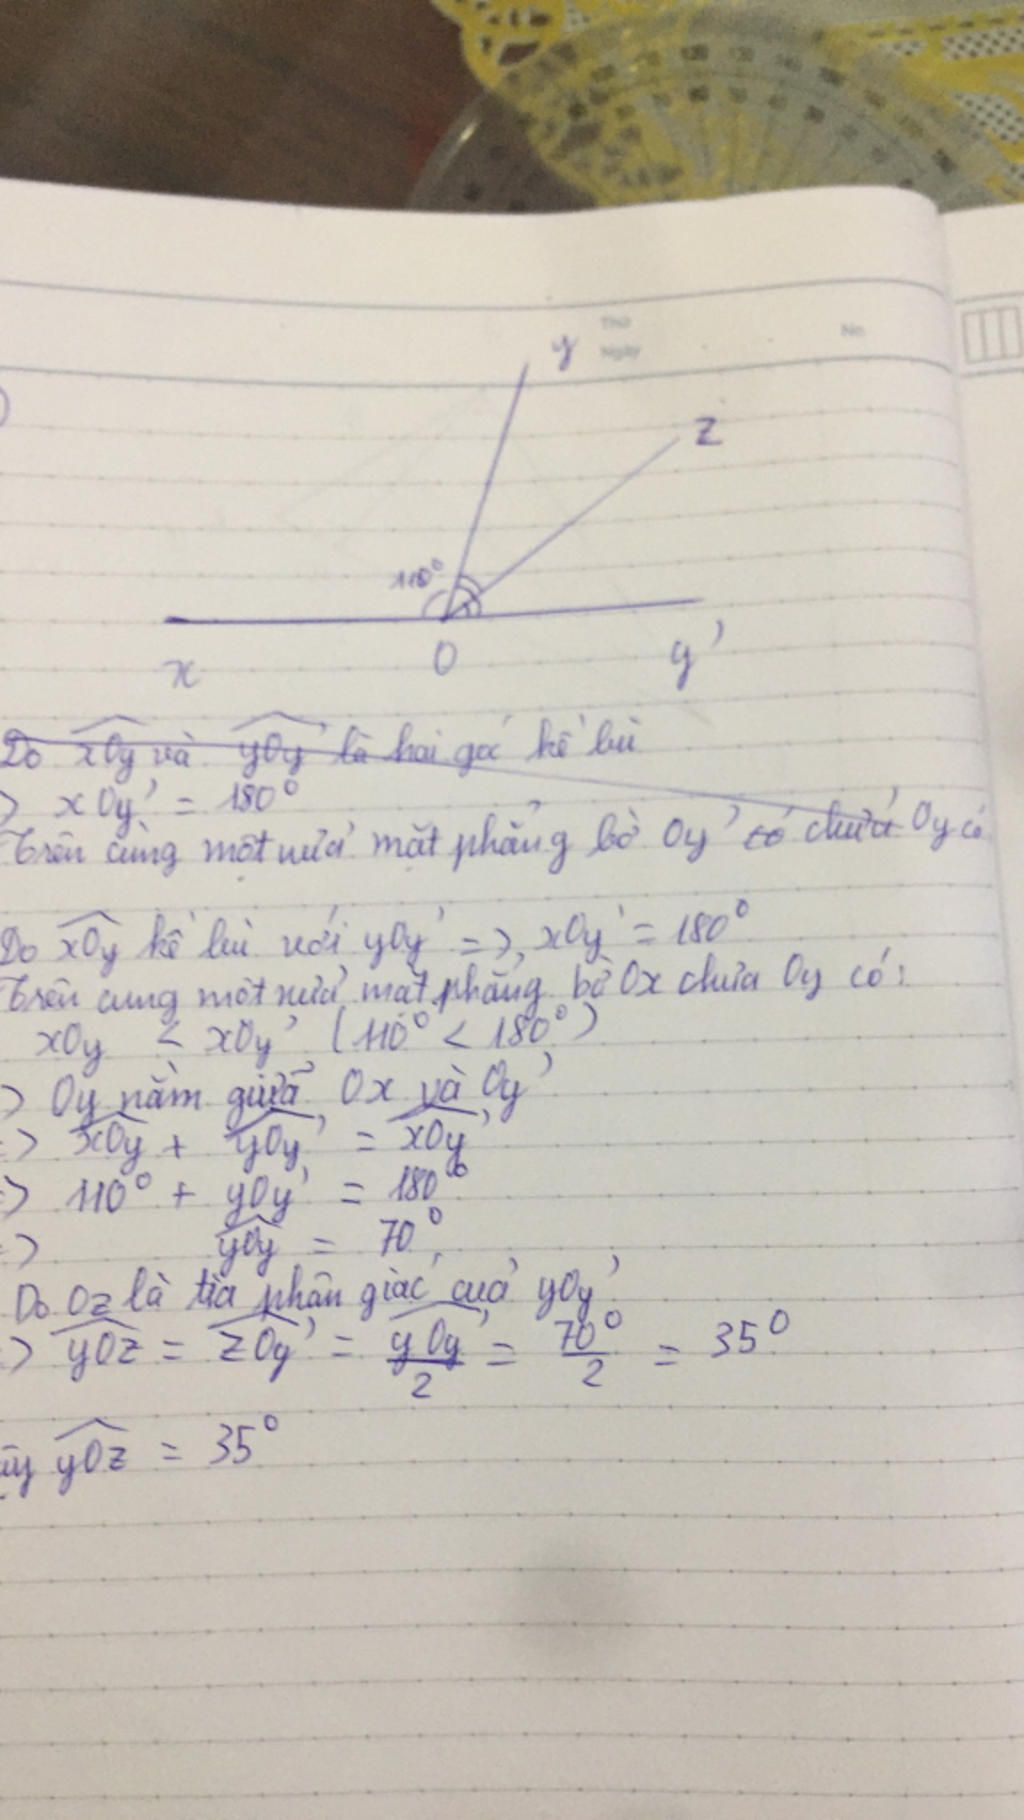 y
Thứ
Ngày
No
z
110°
x
O
y'
Do xOy và yOy' là hai góc kề bù
xOy' = 180°
Trên cùng một nửa mặt phẳng bờ Oy' có chứa Oy có
Do xOy kề bù với yOy' => xOy' = 180°
Trên cùng một nửa mặt phẳng bờ Ox chứa Oy có:
xOy < xOy' (110° < 180°)
=> Oy nằm giữa Ox và Oy'
=> xOy + yOy' = xOy'
=> 110° + yOy' = 180°
=> yOy' = 70°
Do Oz là tia phân giác của yOy'
=> yOz = zOy' = yOy'/2 = 70°/2 = 35°
yOz = 35°